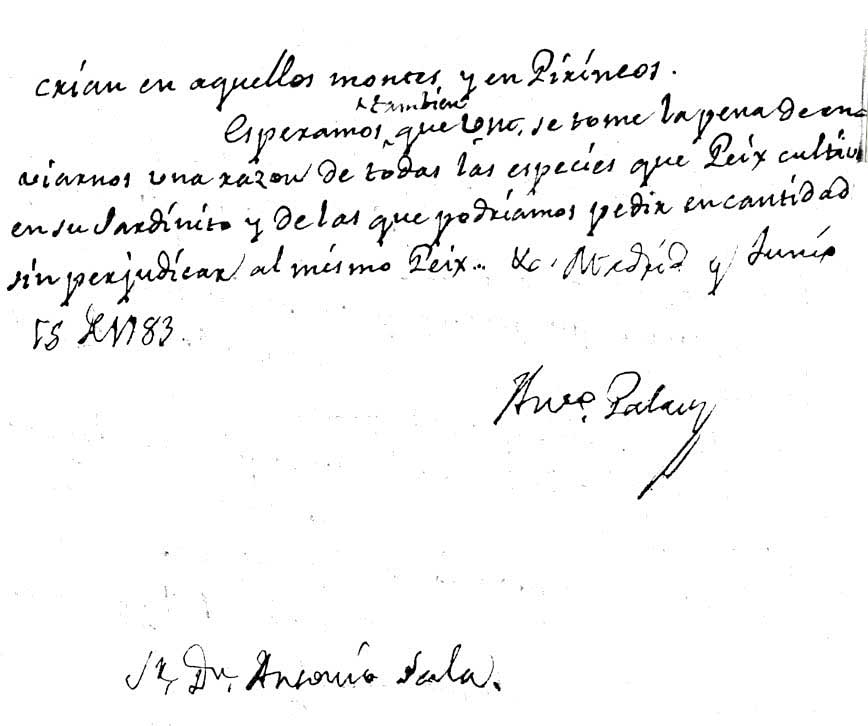 crian en aquellos montes y en Pirineos.
tambien
Esperamos, que Vm. se tome la pena de en-
viarnos una razon de todas las especies que Peix cultiva
en su Jardinito y de las que podriamos pedir en cantidad
sin perjudicar al mismo Peix... &c. Madrid y Junio
15 de 1783.
Anto. Palau
Sr. Dn. Antonio Sala.